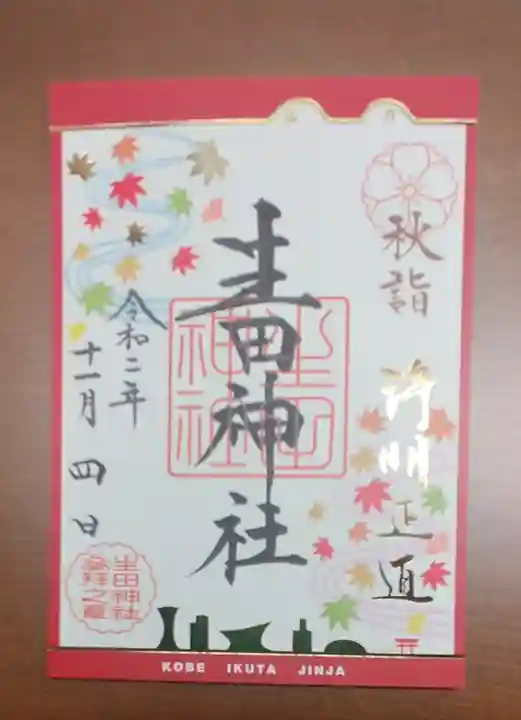 秋詣
正道
生田神社
生田神社
令和二年
十一月四日
生田神社
参拝之證
KOBE IKUTA JINJA